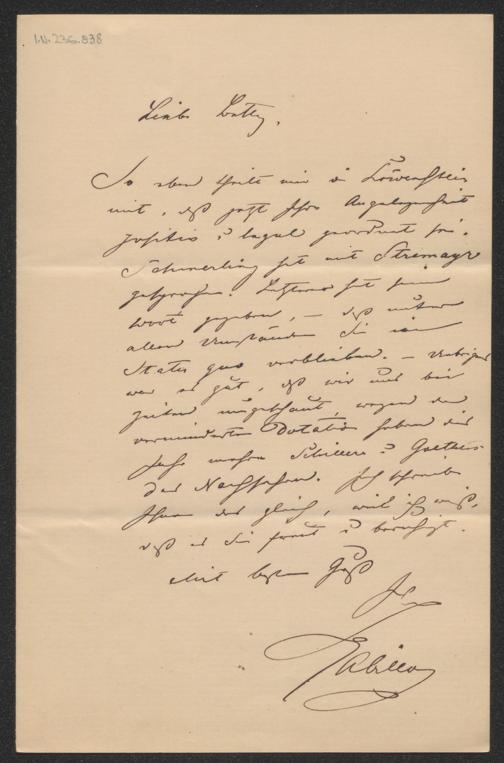 I.N. 236.838
Liebe Betty,
So eben theilt mir die Löwenstein
mit, daß jetzt Ihre Angelegenheit
positiv u legal geordnet sei.
Schmerling hat mit Stremayr
gesprochen. Letzterer hat sein
Wort gegeben, – daß unter
allen Umständen Sie im
Status quo verblieben. – Uebrigens
war es gut, daß wir uns bei
Zeiten umgeschaut, wegen der
verminderten Dotation haben dies
Jahr mehrere Schillers u Goethes
das Nachsehen. Ich schreibe
Ihnen das gleich, weil ich weiß,
daß es Sie freut u beruhigt.
Mit bestem Gruß
Ihr